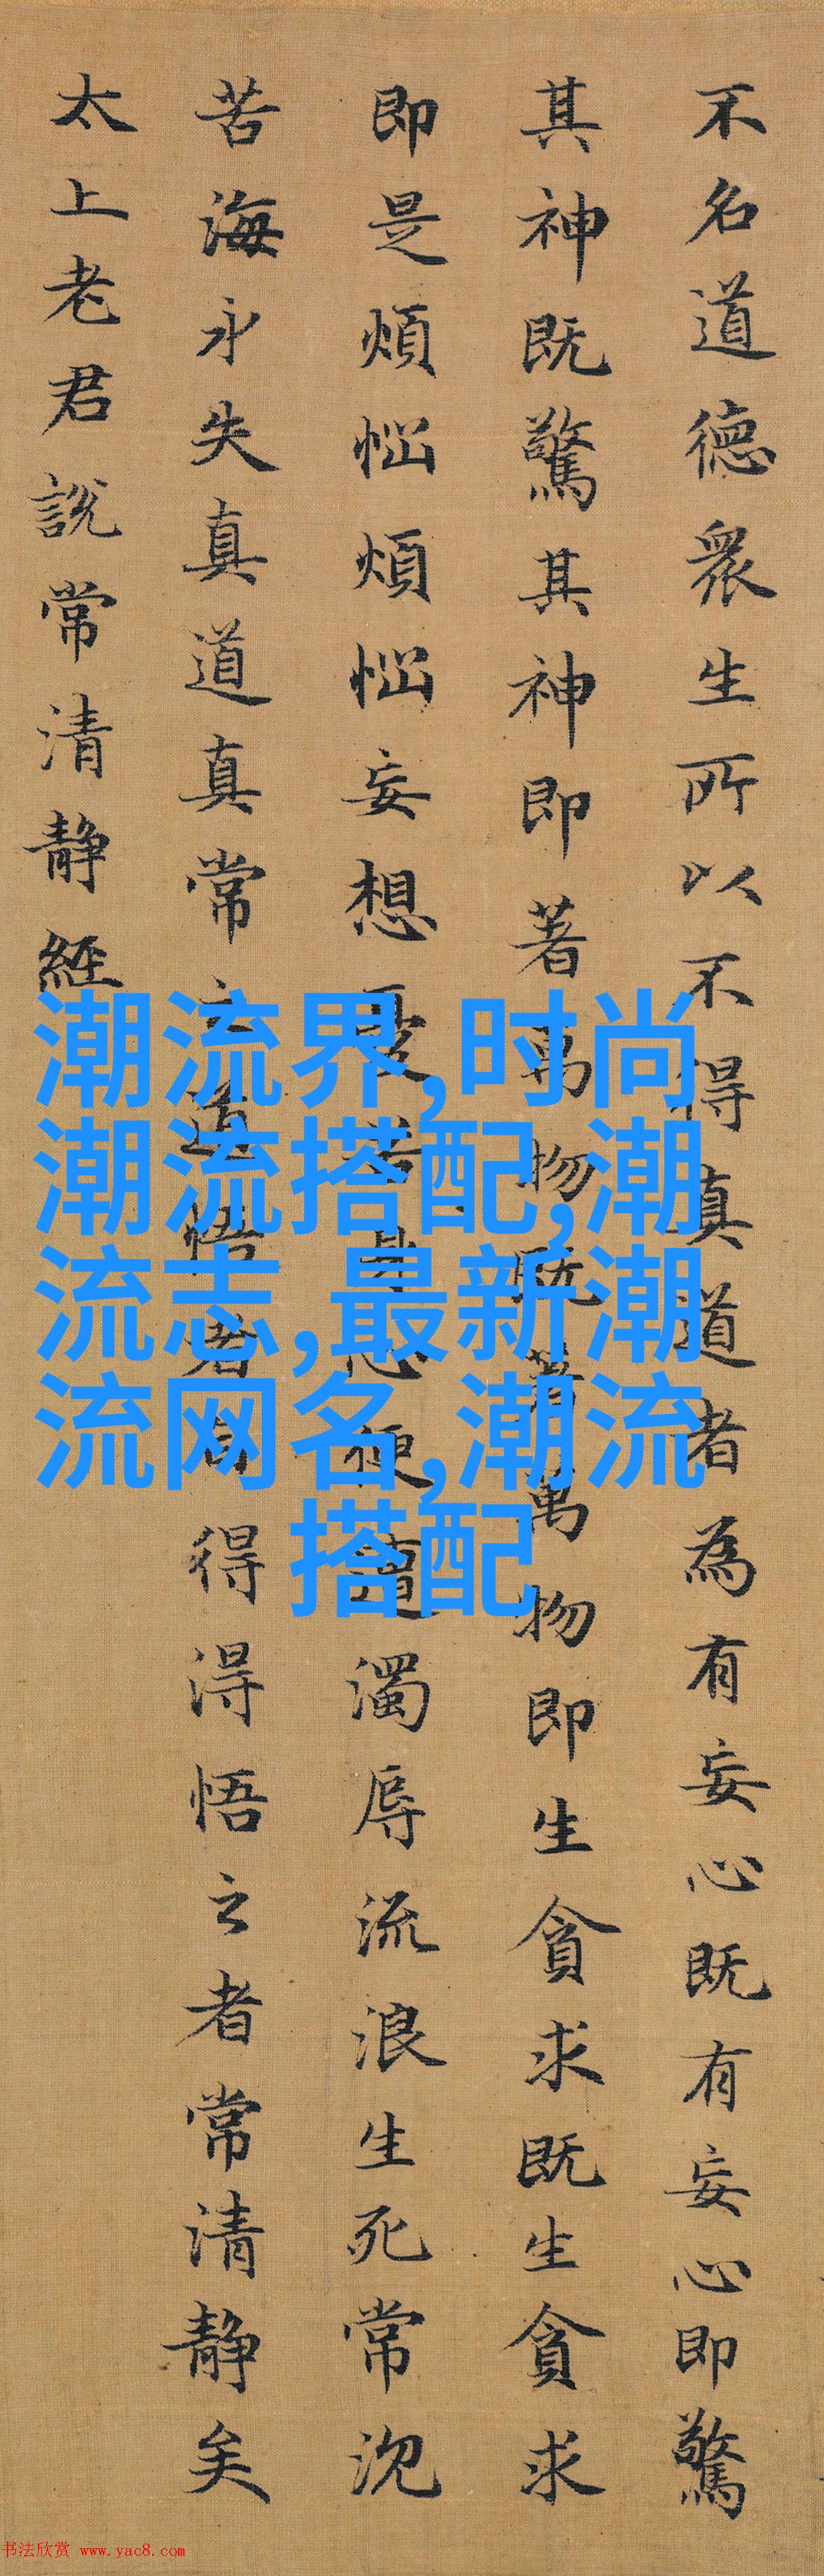 不名道德眾生所以不得真道者為有妄心既有妄心即驚
其神既驚其神即著萬物既著萬物即生貪求既生貪求
即是煩惱煩惱妄想憂苦身心便遭濁辱流浪生死常沉
苦海永失真道真常之道悟者自得得悟之者常清静矣
太上老君說常清静經
潮流界,时尚
潮流搭配,潮
流志,最新潮
流网名,潮流
搭配
书法欣赏 www.yac8.com